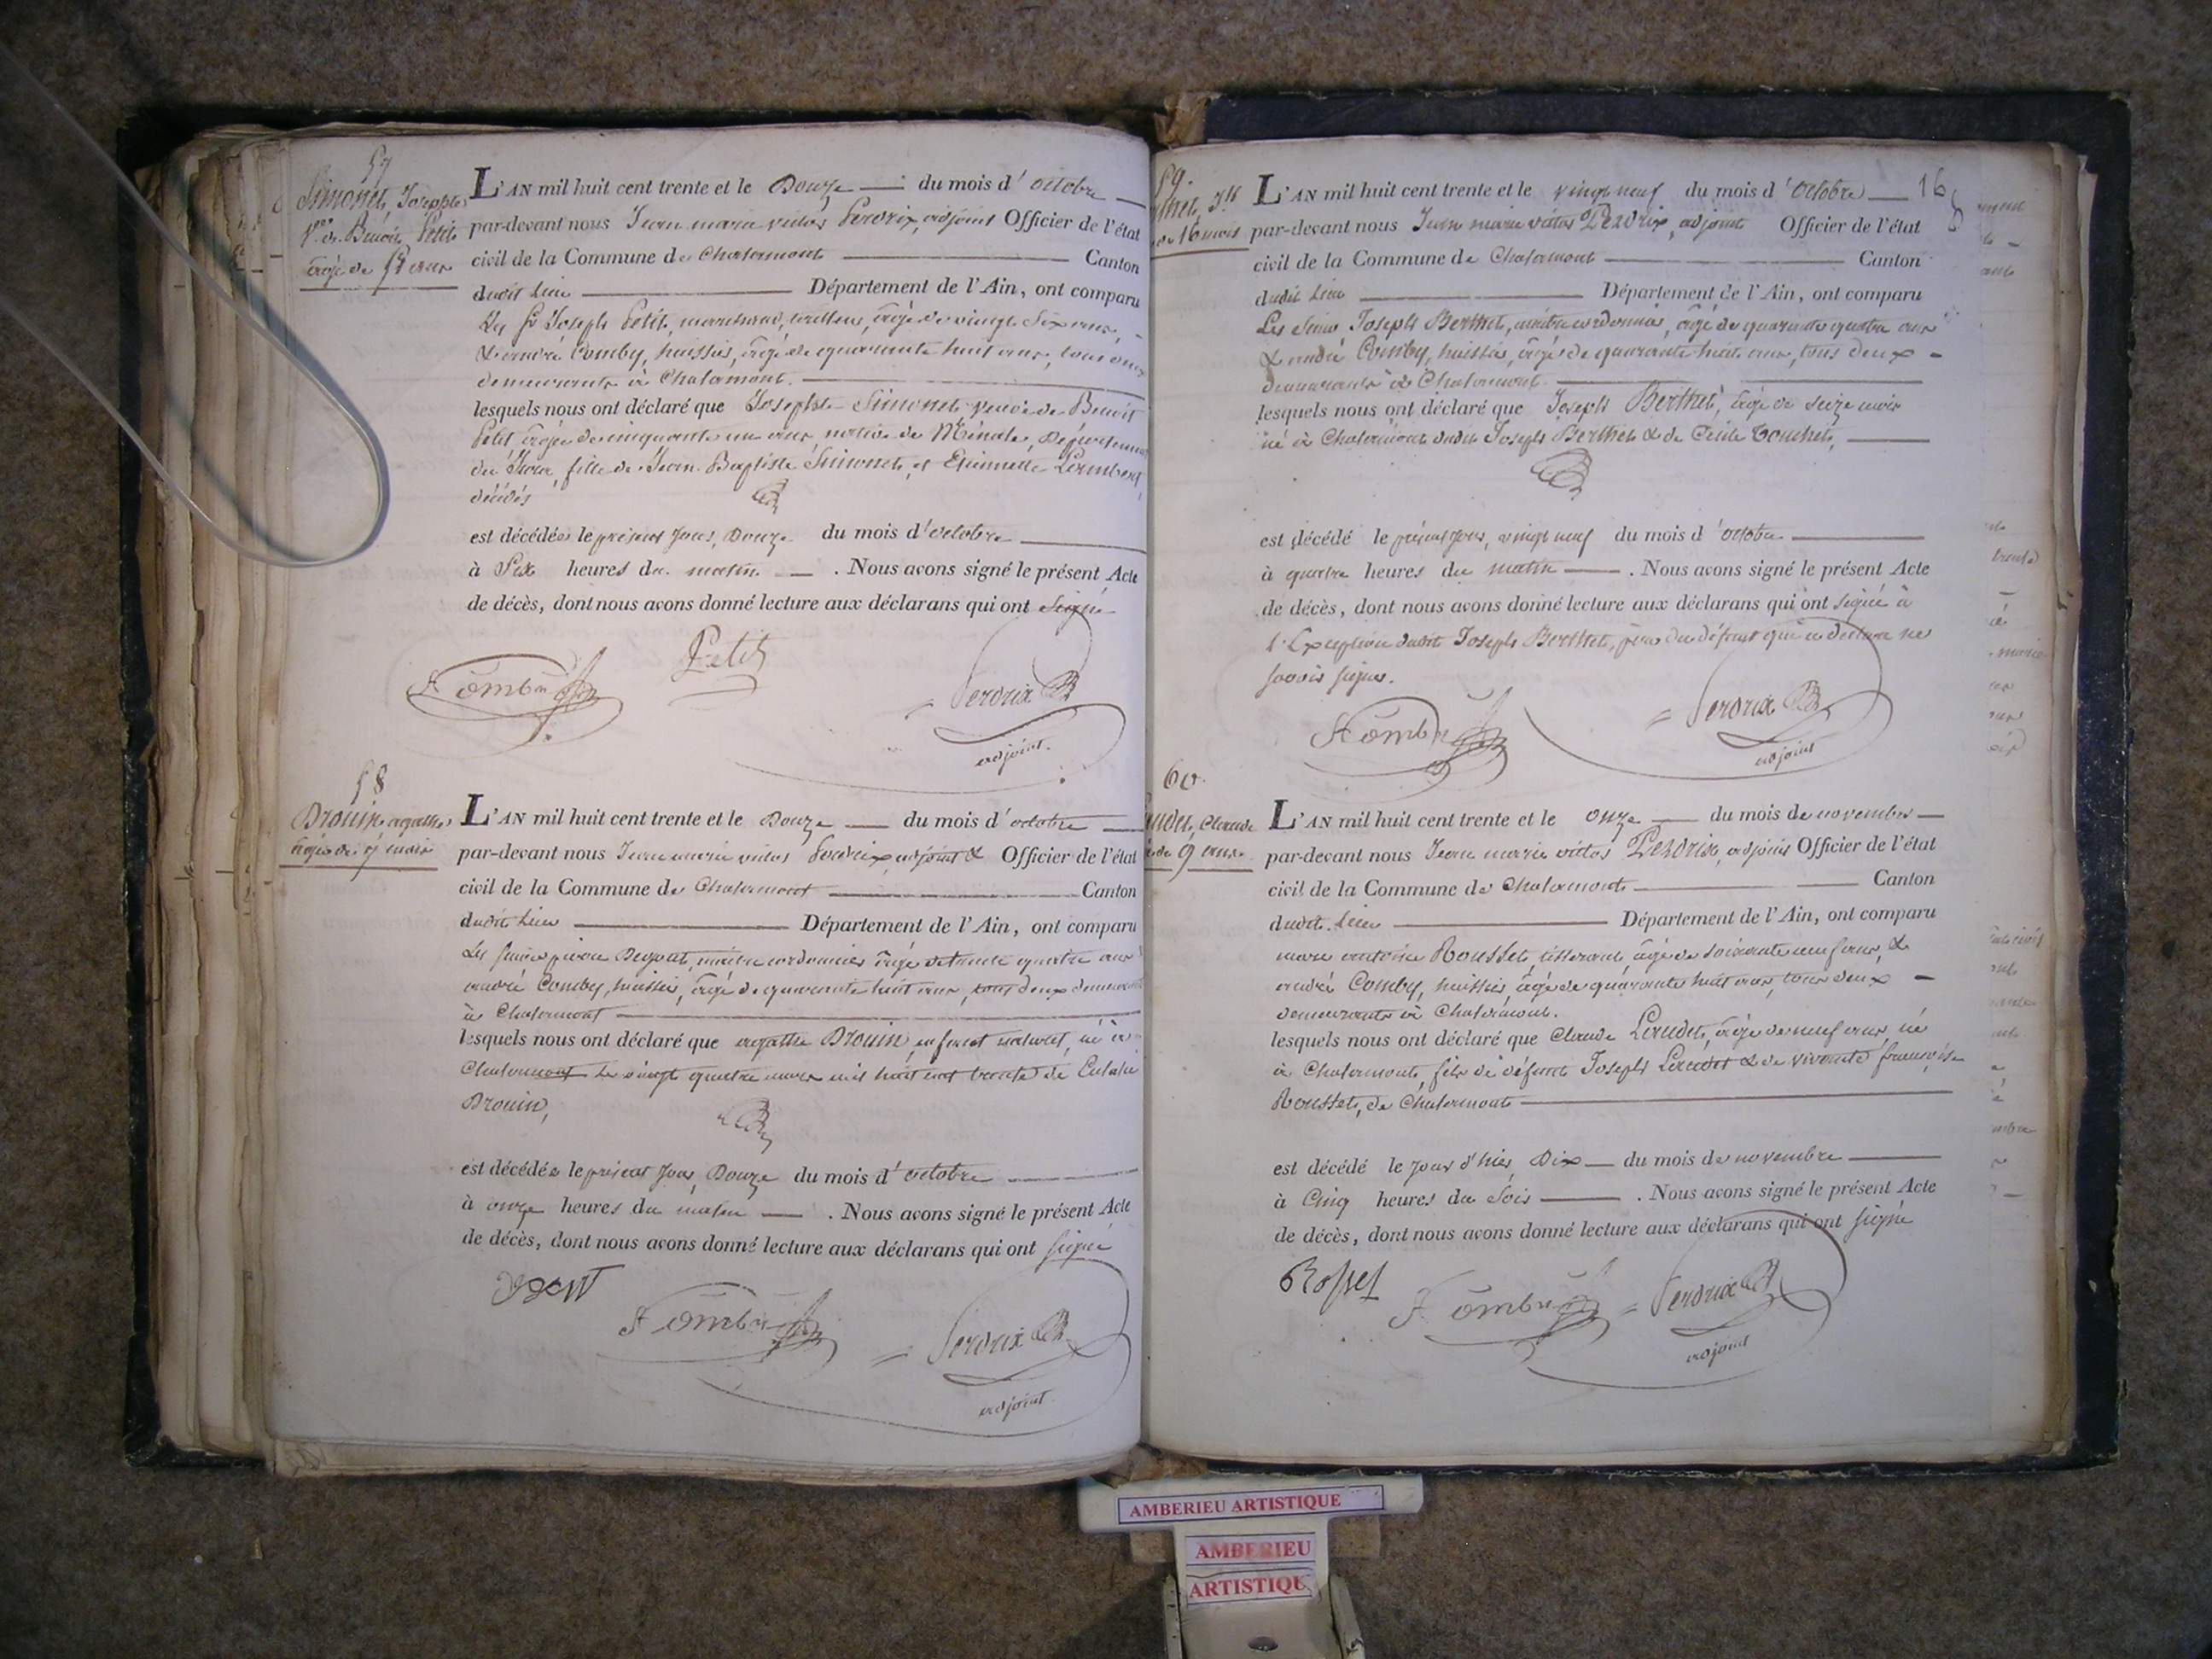 57
Simonet, Josephte
Vve de Benoit Petit
âgée de 51 ans
L'AN mil huit cent trente et le Douze du mois d'octobre
par-devant nous Jean marie victor Perdrix, adjoint Officier de l'état
civil de la Commune de Chalamont Canton
dudit lieu Département de l'Ain, ont comparu
Les Srs Joseph Petit, marchand, tailleur, âgé de vingt six ans,
& andré Comby, huissier, âgé de quarante huit ans, tous deux
demeurants à Chalamont.
lesquels nous ont déclaré que Josephte Simonet veuve de Benoit
Petit âgée de cinquante un ans, native de Département
du Jura, fille de Jean Baptiste Simonet, et Etiennette Lambert,
décédés
est décédée le présent jour, Douze du mois d'octobre
à Six heures du matin. Nous avons signé le présent Acte
de décès, dont nous avons donné lecture aux déclarans qui ont signé
A Comby Petit Perdrix
adjoint.
58
Drouin agathe
âgée de 7 mois
L'AN mil huit cent trente et le Douze du mois d'octobre
par-devant nous Jean marie victor Perdrix, adjoint & Officier de l'état
civil de la Commune de Chalamont Canton
dudit Lieu Département de l'Ain, ont comparu
Les sieurs pierre maitre cordonnier âgé de trente quatre ans
andré Comby, huissier, âgé de quarante huit ans, tous deux demeurants
à Chalamont
lesquels nous ont déclaré que agathe Drouin, enfant naturel, né à
Chalamont le vingt quatre mars mil huit cent trente de Eulalie
Drouin,
est décédée le présent jour, Douze du mois d'octobre
à onze heures du matin. Nous avons signé le présent Acte
de décès, dont nous avons donné lecture aux déclarans qui ont signé
A Comby Perdrix
adjoint
59.
thet, Jph
de 16 mois
L'AN mil huit cent trente et le vingt neuf du mois d'octobre 16
par-devant nous Jean marie victor Perdrix, adjoint Officier de l'état
civil de la Commune de Chalamont Canton
dudit Lieu Département de l'Ain, ont comparu
Les Sieurs Joseph Berthet, maitre cordonnier, âgé de quarante quatre ans
& andré Comby, huissier, âgé de quarante huit ans, tous deux
demeurants à Chalamont.
lesquels nous ont déclaré que Joseph Berthet, âgé de seize mois
né à Chalamont dudit Joseph Berthet & de Cécile
est décédé le présent jour, vingt neuf du mois d'octobre
à quatre heures du matin. Nous avons signé le présent Acte
de décès, dont nous avons donné lecture aux déclarans qui ont signé à
l'Exception dudit Joseph Berthet, père du défunt qui a déclaré ne
savoir signer.
A Comby Perdrix
adjoint
60.
Claude
de 9 ans.
L'AN mil huit cent trente et le onze du mois de novembre
par-devant nous Jean marie victor Perdrix, adjoint Officier de l'état
civil de la Commune de Chalamont Canton
dudit Lieu Département de l'Ain, ont comparu
marc antoine Rousset, tisserand, âgé de soixante neuf ans, &
andré Comby, huissier, âgé de quarante huit ans, tous deux
demeurants à Chalamont.
lesquels nous ont déclaré que Claude Laudet, âgé de neuf ans, né
à Chalamont, fils de défunt Joseph Laudet & de vivante françoise
Rousset, de Chalamont
est décédé le jour d'hier, Dix du mois de novembre
à Cinq heures du Soir. Nous avons signé le présent Acte
de décès, dont nous avons donné lecture aux déclarans qui ont signé
Rosset A Comby Perdrix
adjoint
AMBERIEU ARTISTIQUE
AMBERIEU
ARTISTIQUE